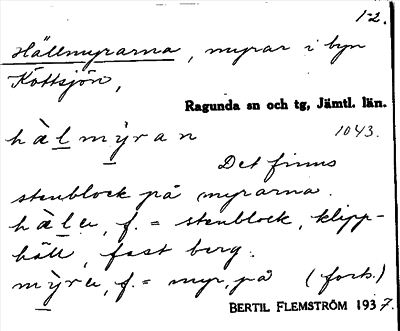 1-2.
Hällmyrarna, myrar i byn
Köttsjön,
Ragunda sn och tg, Jämtl. län.
hàlmỳran 1043.
Det finns
stenblock på myrarna.
hàle, f. = stenblock, klipp-
häll, fast berg.
mỳre, f. = myr, på (forts.)
BERTIL FLEMSTRÖM 1937.